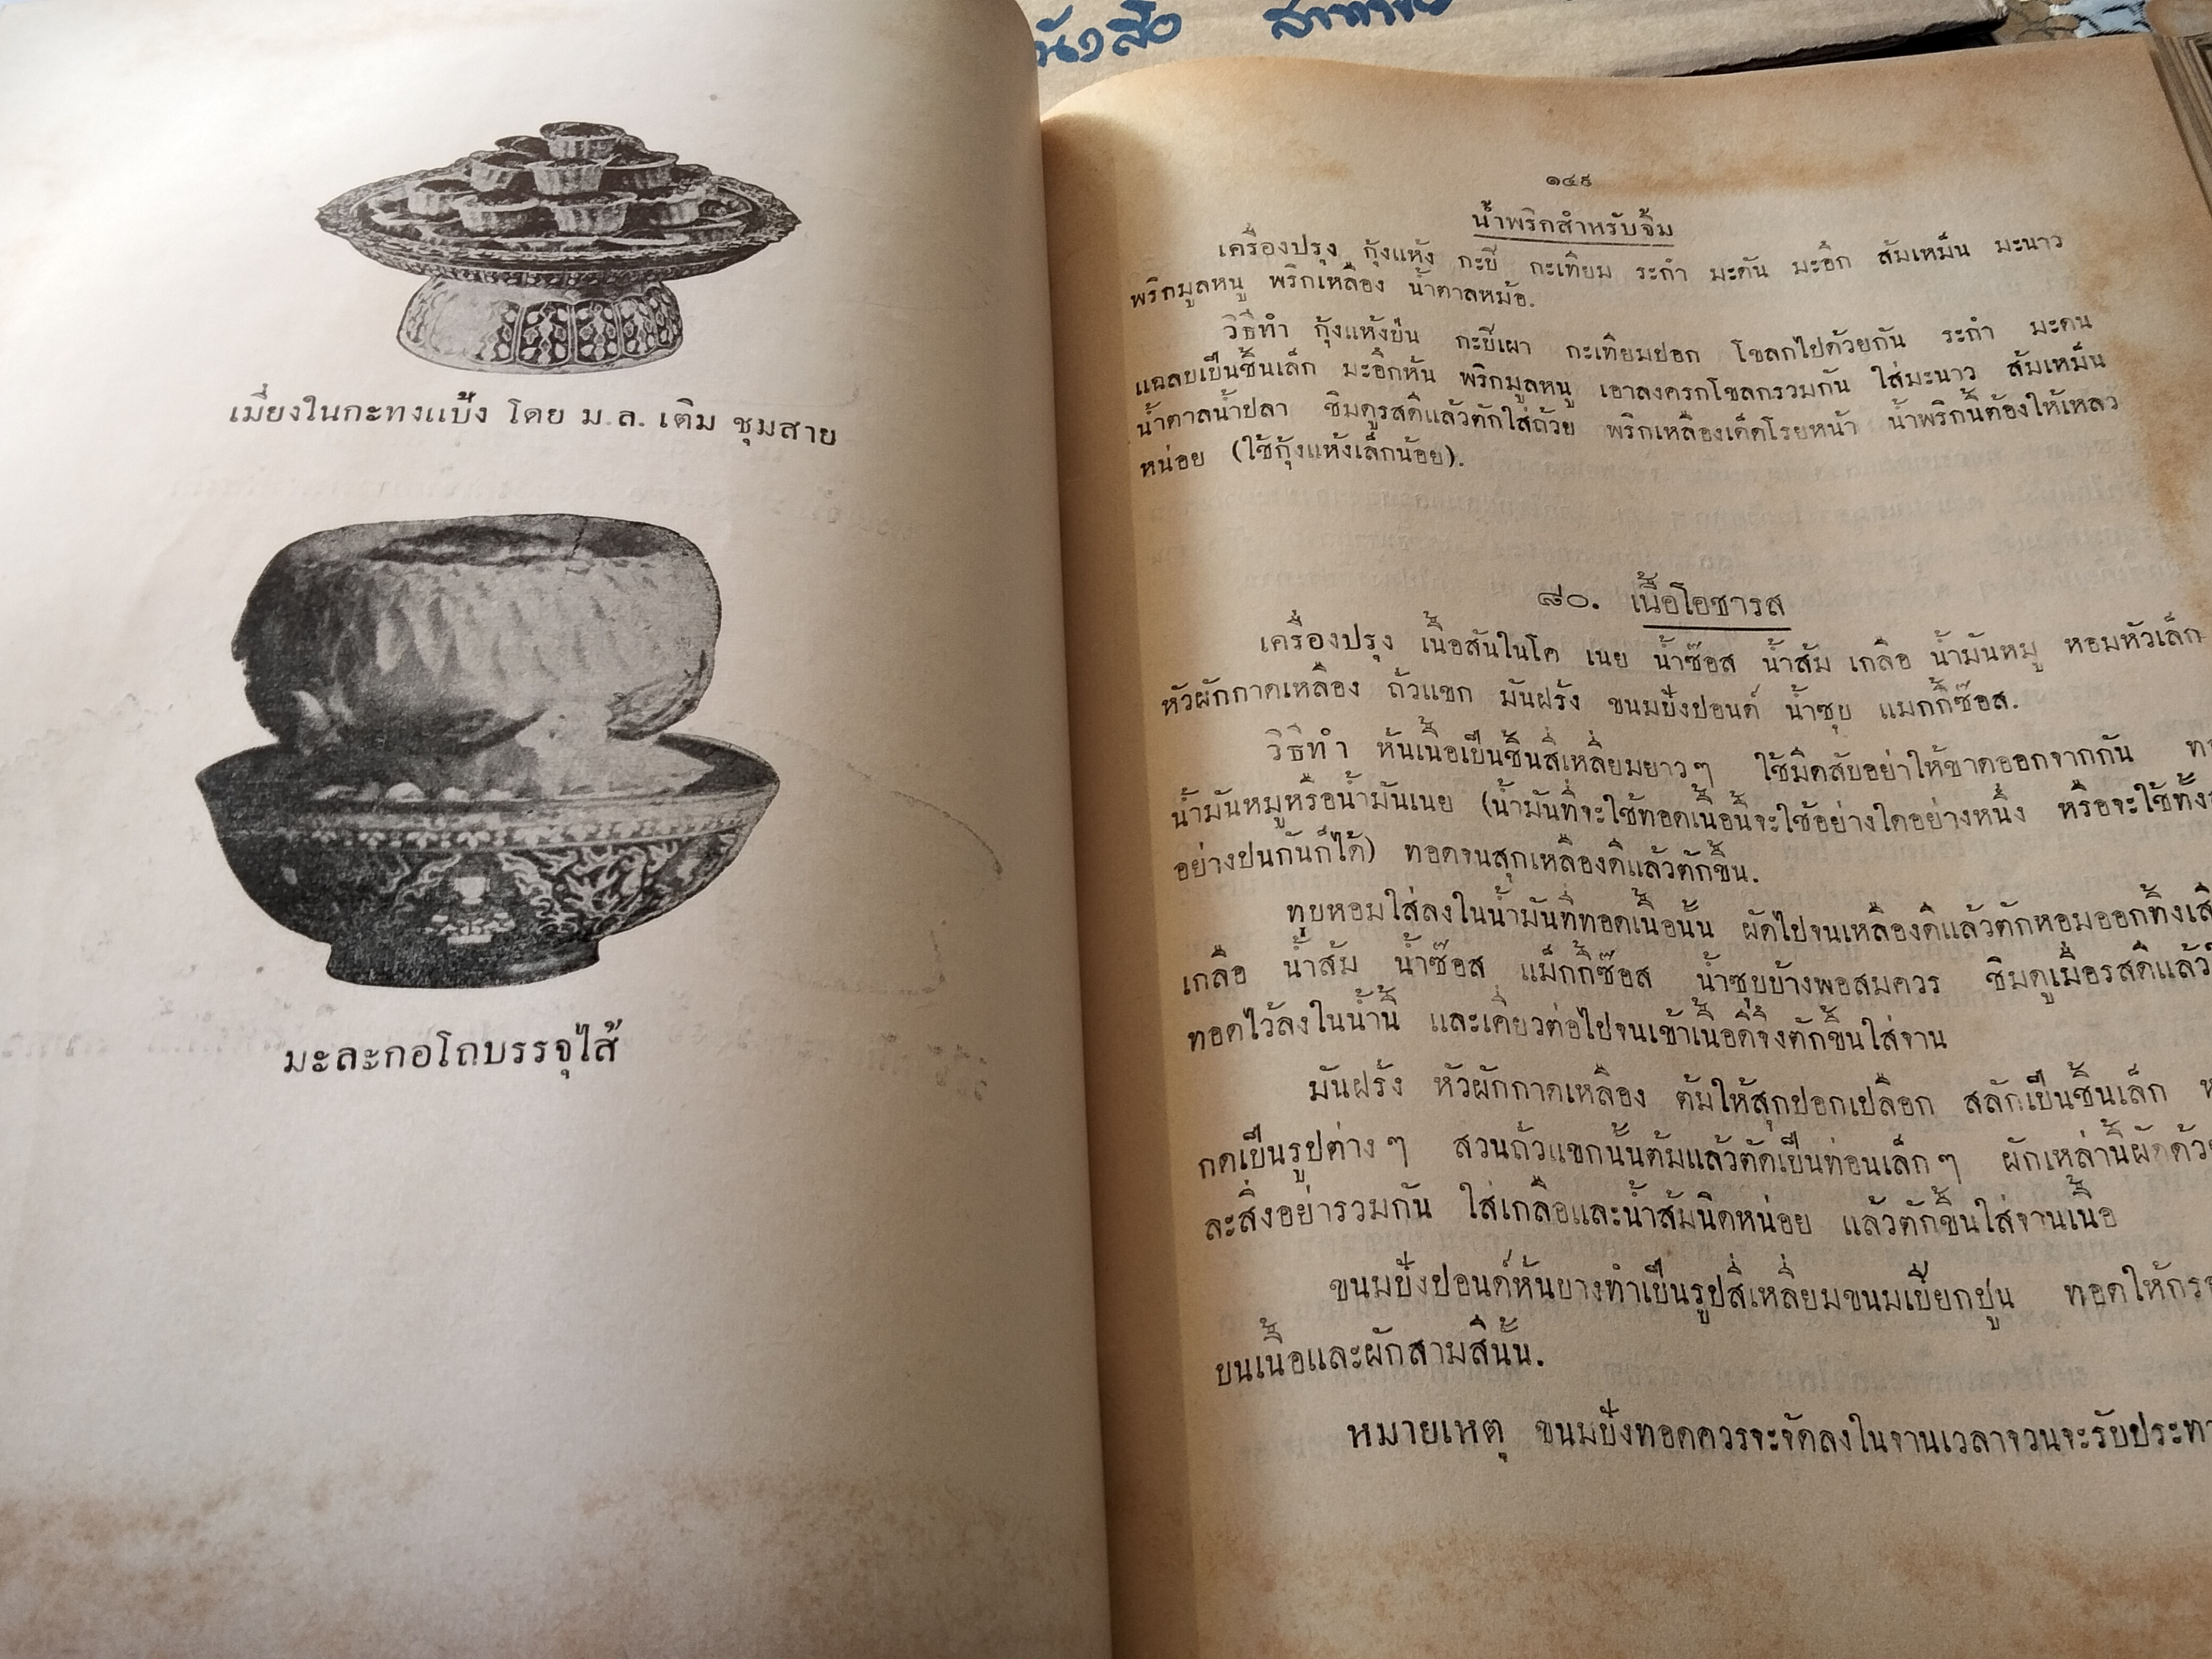 เมี่ยงในกะทงแป้ง โดย ม.ล. เติม ชุมสาย
มะละกอโถบรรจุไส้
นังสือ
๑๔๙
น้ำพริกสำหรับจิ้ม
เครื่องปรุง กุ้งแห้ง กะปิ กะเทียม ระกำ มะดัน มะอึก ส้มเหม็น มะนาว
พริกมูลหนู พริกเหลือง น้ำตาลหม้อ.
วิธีทำ กุ้งแห้งป่น กะปิเผา กะเทียมปอก โขลกไปด้วยกัน ระกำ มะดน
แฉลบเป็นชิ้นเล็ก มะอึกหั่น พริกมูลหนู เอาลงครกโขลกรวมกัน ใส่มะนาว ส้มเหม็น
น้ำตาลน้ำปลา ชิมดูรสดีแล้วตักใส่ถ้วย พริกเหลืองเด็ดโรยหน้า น้ำพริกนี้ต้องให้เหลว
หน่อย (ใช้กุ้งแห้งเล็กน้อย).
๘๐. เนื้อโอชารส
เครื่องปรุง เนื้อสันในโค เนย น้ำซ๊อส น้ำส้ม เกลือ น้ำมันหมู หอมหัวเล็ก
หัวผักกาดเหลือง ถั่วแขก มันฝรั่ง ขนมปังปอนด์ น้ำซุบ แมกกี้ซ๊อส.
วิธีทำ หั่นเนื้อเป็นชิ้นสี่เหลี่ยมยาวๆ ใช้มีดสับอย่าให้ขาดออกจากกัน
น้ำมันหมูหรือน้ำมันเนย (น้ำมันที่จะใช้ทอดเนื้อนี้จะใช้อย่างใดอย่างหนึ่ง หรือจะใช้ทั้ง
อย่างปนกันก็ได้) ทอดจนสุกเหลืองดีแล้วตักขึ้น.
ทุบหอมใส่ลงในน้ำมันที่ทอดเนื้อนั้น ผัดไปจนเหลืองดีแล้วตักหอมออกทิ้ง
เกลือ น้ำส้ม น้ำซ๊อส แม็กกี้ซ๊อส น้ำซุบบ้างพอสมควร ชิมดูเมื่อรสดีแล้ว
ทอดไว้ลงในน้ำนี้ และเคี่ยวต่อไปจนเข้าเนื้อดีจึงตักขึ้นใส่จาน
มันฝรั่ง หัวผักกาดเหลือง ต้มให้สุกปอกเปลือก สลักเป็นชิ้นเล็ก
กดเป็นรูปต่างๆ สวนถั่วแขกนั้นต้มแล้วตัดเป็นท่อนเล็กๆ ผักเหล่านี้ผัด
ละสิ่งอย่ารวมกัน ใส่เกลือและน้ำส้มนิดหน่อย แล้วตักขึ้นใส่จานเนื้อ
ขนมปังปอนด์หั่นบางทำเป็นรูปสี่เหลี่ยมขนมเปียกปูน ทอดให้
บนเนื้อและผักสามสีนั้น.
หมายเหตุ ขนมปังทอดควรจะจัดลงในจานเวลาจวนจะ